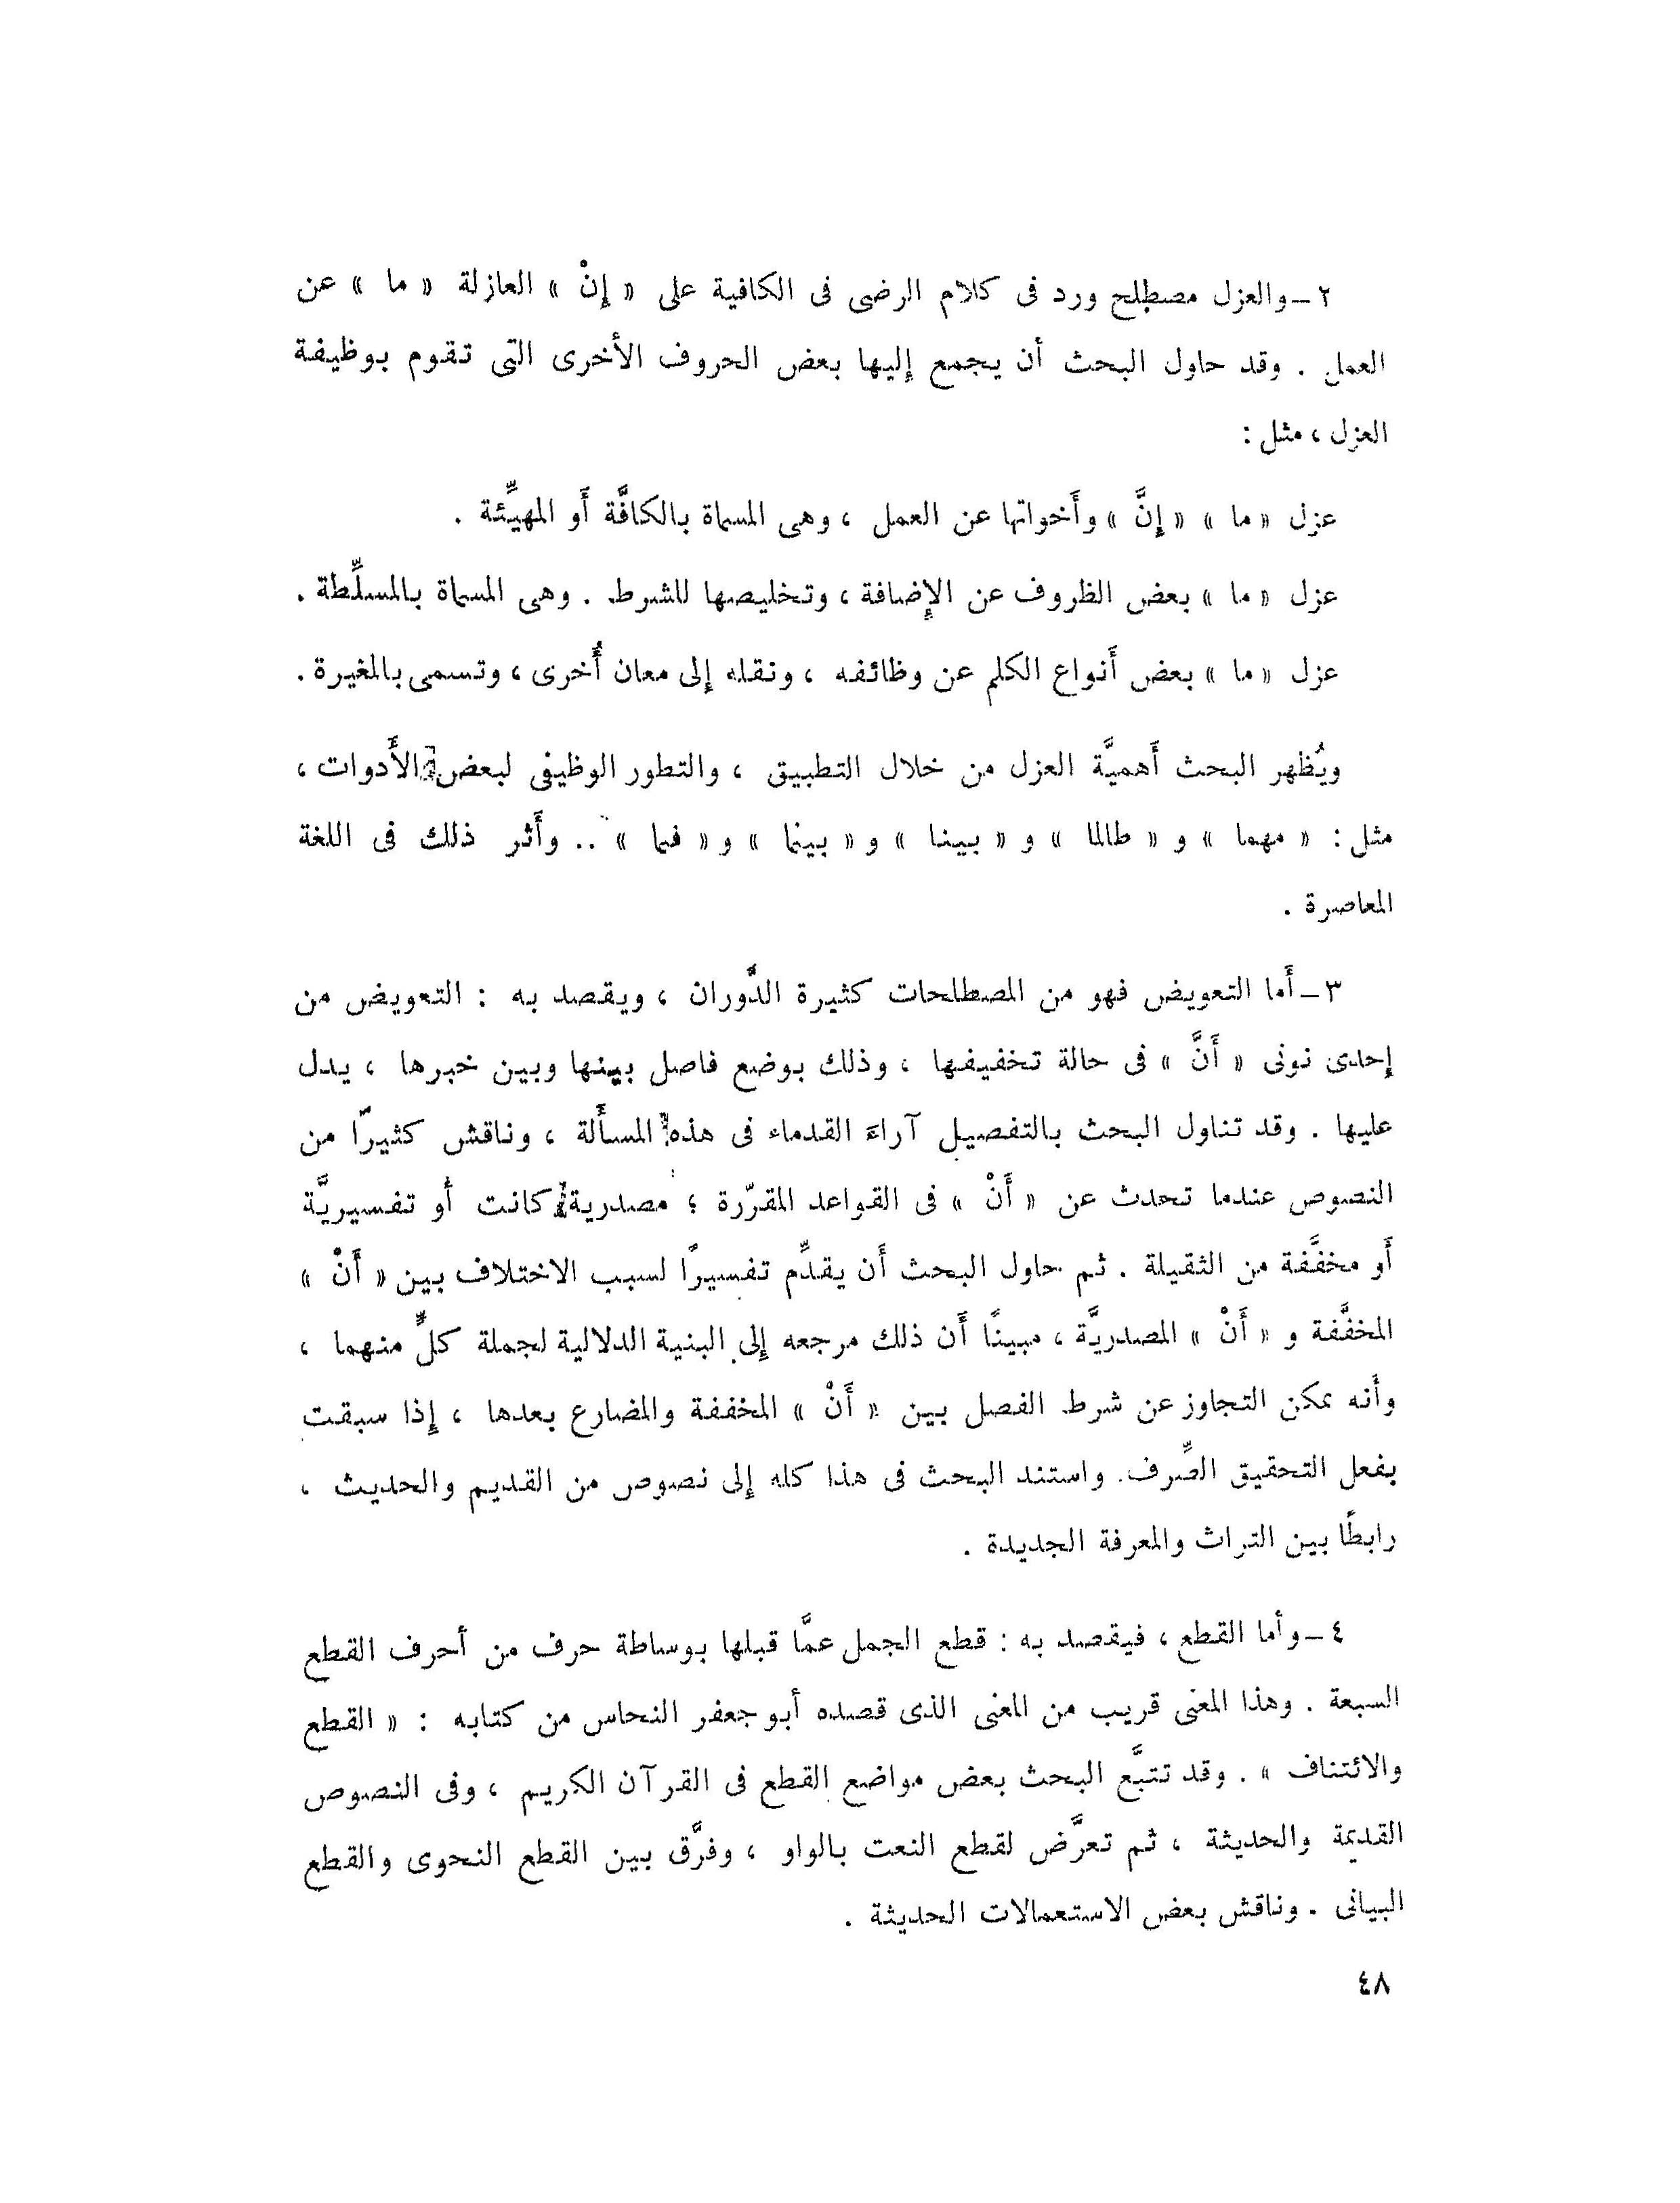 ٢ـ والعزل مصطلح ورد فى كلام الرضى فى الكافية على « إِنْ » العازلة « ما » عن
العمل . وقد حاول البحث أن يجمع إليها بعض الحروف الأخرى التى تقوم بوظيفة
العزل ، مثل :
عزل « ما » « إِنَّ » وأَخواتها عن العمل ، وهى المسماة بالكافَّة أَو المهيِّئة .
عزل « ما » بعض الظروف عن الإِضافة ، وتخليصها للشرط . وهى المسماة بالمسلِّطة .
عزل « ما » بعض أَنواع الكلم عن وظائفه ، ونقله إِلى معان أُخرى ، وتسمى بالمغيرة .
ويُظهر البحث أَهميَّة العزل من خلال التطبيق ، والتطور الوظيفى لبعض الأَدوات ،
مثل : « مهما » و « طالما » و « بينا » و « بينما » و « فيما » .. وأَثر ذلك فى اللغة
المعاصرة .
٣ـ أَما التعويض فهو من المصطلحات كثيرة الدَّوران ، ويقصد به : التعويض من
إِحدى نونى « أَنَّ » فى حالة تخفيفها ، وذلك بوضع فاصل بينها وبين خبرها ، يدل
عليها . وقد تناول البحث بالتفصيل آراءَ القدماء فى هذه المسأَلة ، وناقش كثيرًا من
النصوص عندما تحدث عن « أَنْ » فى القواعد المقرّرة ؛ مصدرية كانت أَو تفسيريَّة
أَو مخفَّفة من الثقيلة . ثم حاول البحث أَن يقدِّم تفسيرًا لسبب الاختلاف بين « أَنْ »
المخفَّفة و « أَنْ » المصدريَّة ، مبينًا أَن ذلك مرجعه إِلى البنية الدلالية لجملة كلٍّ منهما ،
وأَنه يمكن التجاوز عن شرط الفصل بين « أَنْ » المخففة والمضارع بعدها ، إِذا سبقت
بفعل التحقيق الصِّرف . واستند البحث فى هذا كله إِلى نصوص من القديم والحديث ،
رابطًا بين التراث والمعرفة الجديدة .
٤ـ وأما القطع ، فيقصد به : قطع الجمل عمَّا قبلها بوساطة حرف من أحرف القطع
السبعة . وهذا المعنى قريب من المعنى الذى قصده أبو جعفر النحاس من كتابه : « القطع
والائتناف » . وقد تتبَّع البحث بعض مواضع القطع فى القرآن الكريم ، وفى النصوص
القديمة والحديثة ، ثم تعرَّض لقطع النعت بالواو ، وفرَّق بين القطع النحوى والقطع
البيانى . وناقش بعض الاستعمالات الحديثة .
٤٨